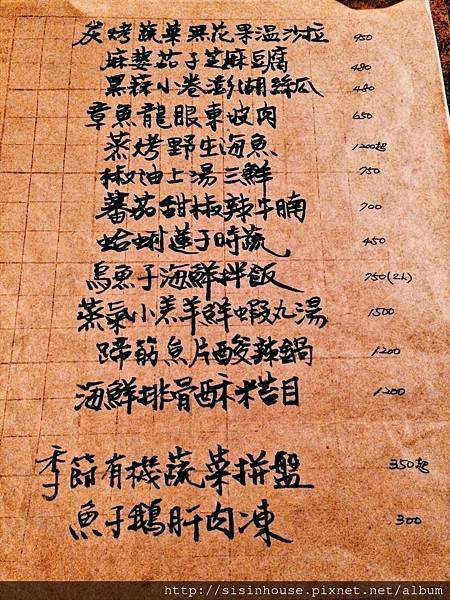 炭烤蔬菜果花果温沙拉 450
麻婆茄子芝麻豆腐 480
黑蒜小卷澎湖絲瓜 480
章魚龍眼東坡肉 650
蒸烤野生海魚 1200起
椒油上湯三鮮 750
蕃茄甜椒辣牛腩 700
蛤蜊蓮子時蔬 450
烏魚子海鮮拌飯 750(2人)
蒸氣小羔羊鮮蝦丸湯 1500
蹄筋魚片酸辣鍋 1200
海鮮排骨酥米苔目 1200
季節有機蔬菜拼盤 350起
魚子鵝肝肉凍 300
http://sisinhouse.pixnet.net/album